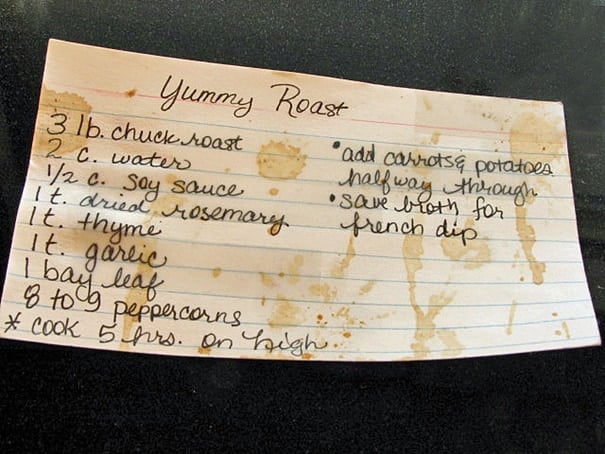 Yummy Roast
3 lb. chuck roast
2 c. water
1/2 c. soy sauce
1 t. dried rosemary
1 t. thyme
1 t. garlic
1 bay leaf
8 to 9 peppercorns
* cook 5 hrs. on high
• add carrots & potatoes
halfway through
• save broth for
french dip